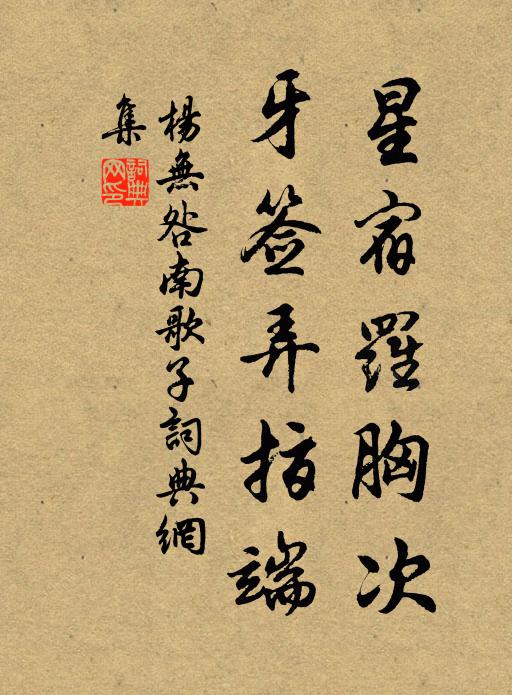 星宿羅胸次
牙签弄指端
楊無咎南歌子詞典網
集
詞典網印